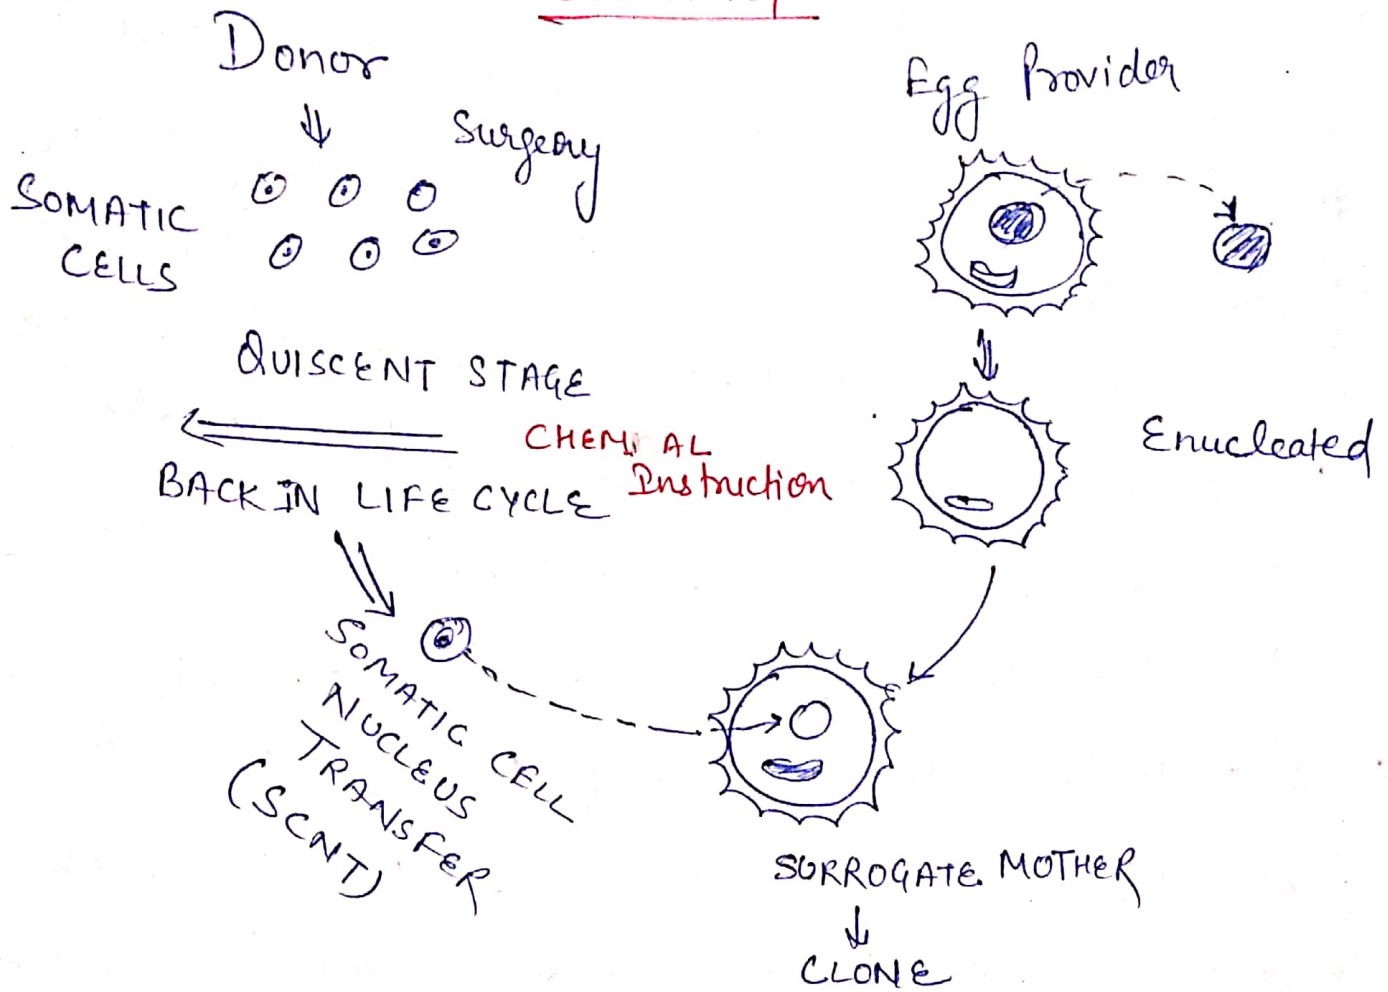 Donor
Surgery
SOMATIC
CELLS
QUISCENT STAGE
CHEMI AL
Instruction
BACK IN LIFE CYCLE
SOMATIC CELL
NUCLEUS
TRANSFER
(SCNT)
Egg Provider
Enucleated
SURROGATE MOTHER
CLONE